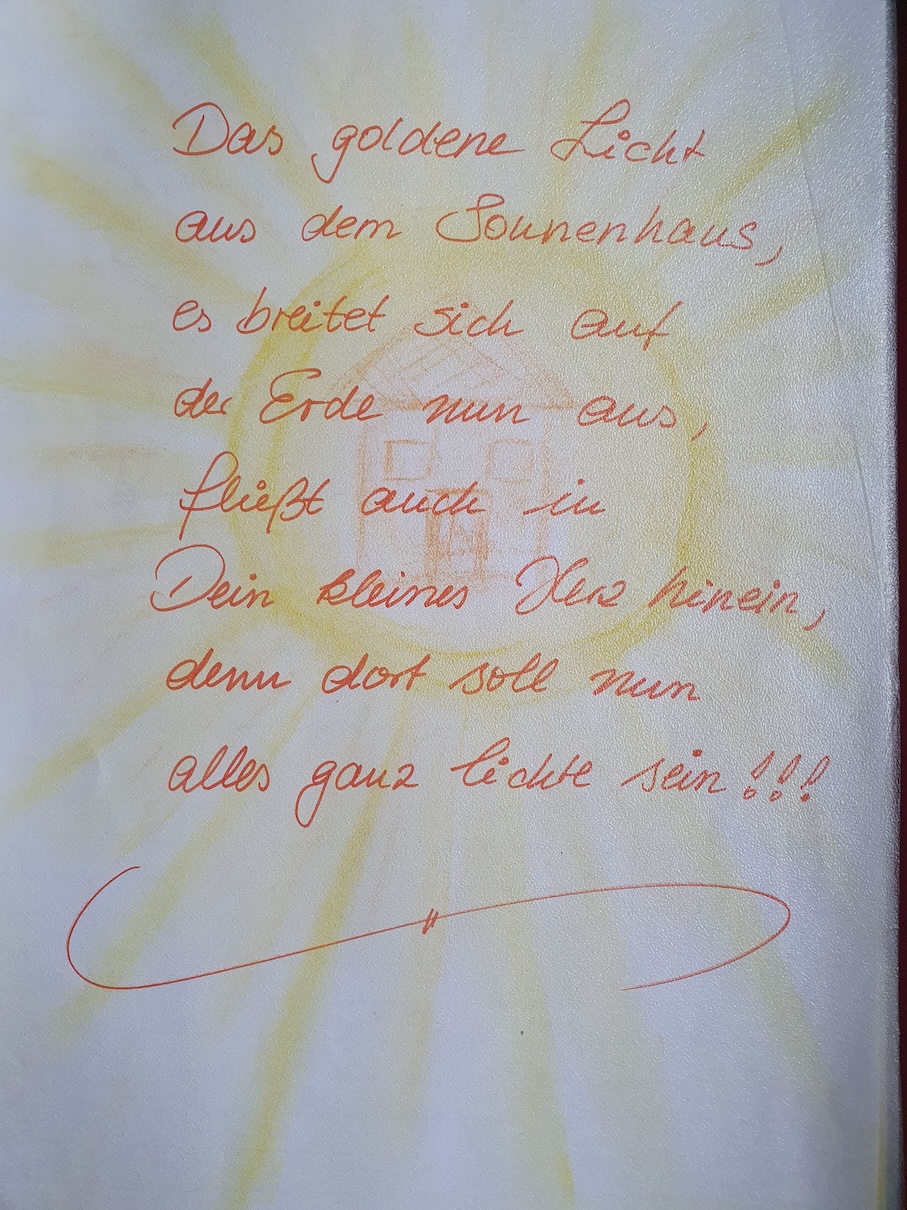 Das goldene Licht
aus dem Sonnenhaus,
es breitet sich auf
der Erde nun aus,
fließt auch in
Dein kleines Herz hinein,
denn dort soll nun
alles ganz lichte sein!!!